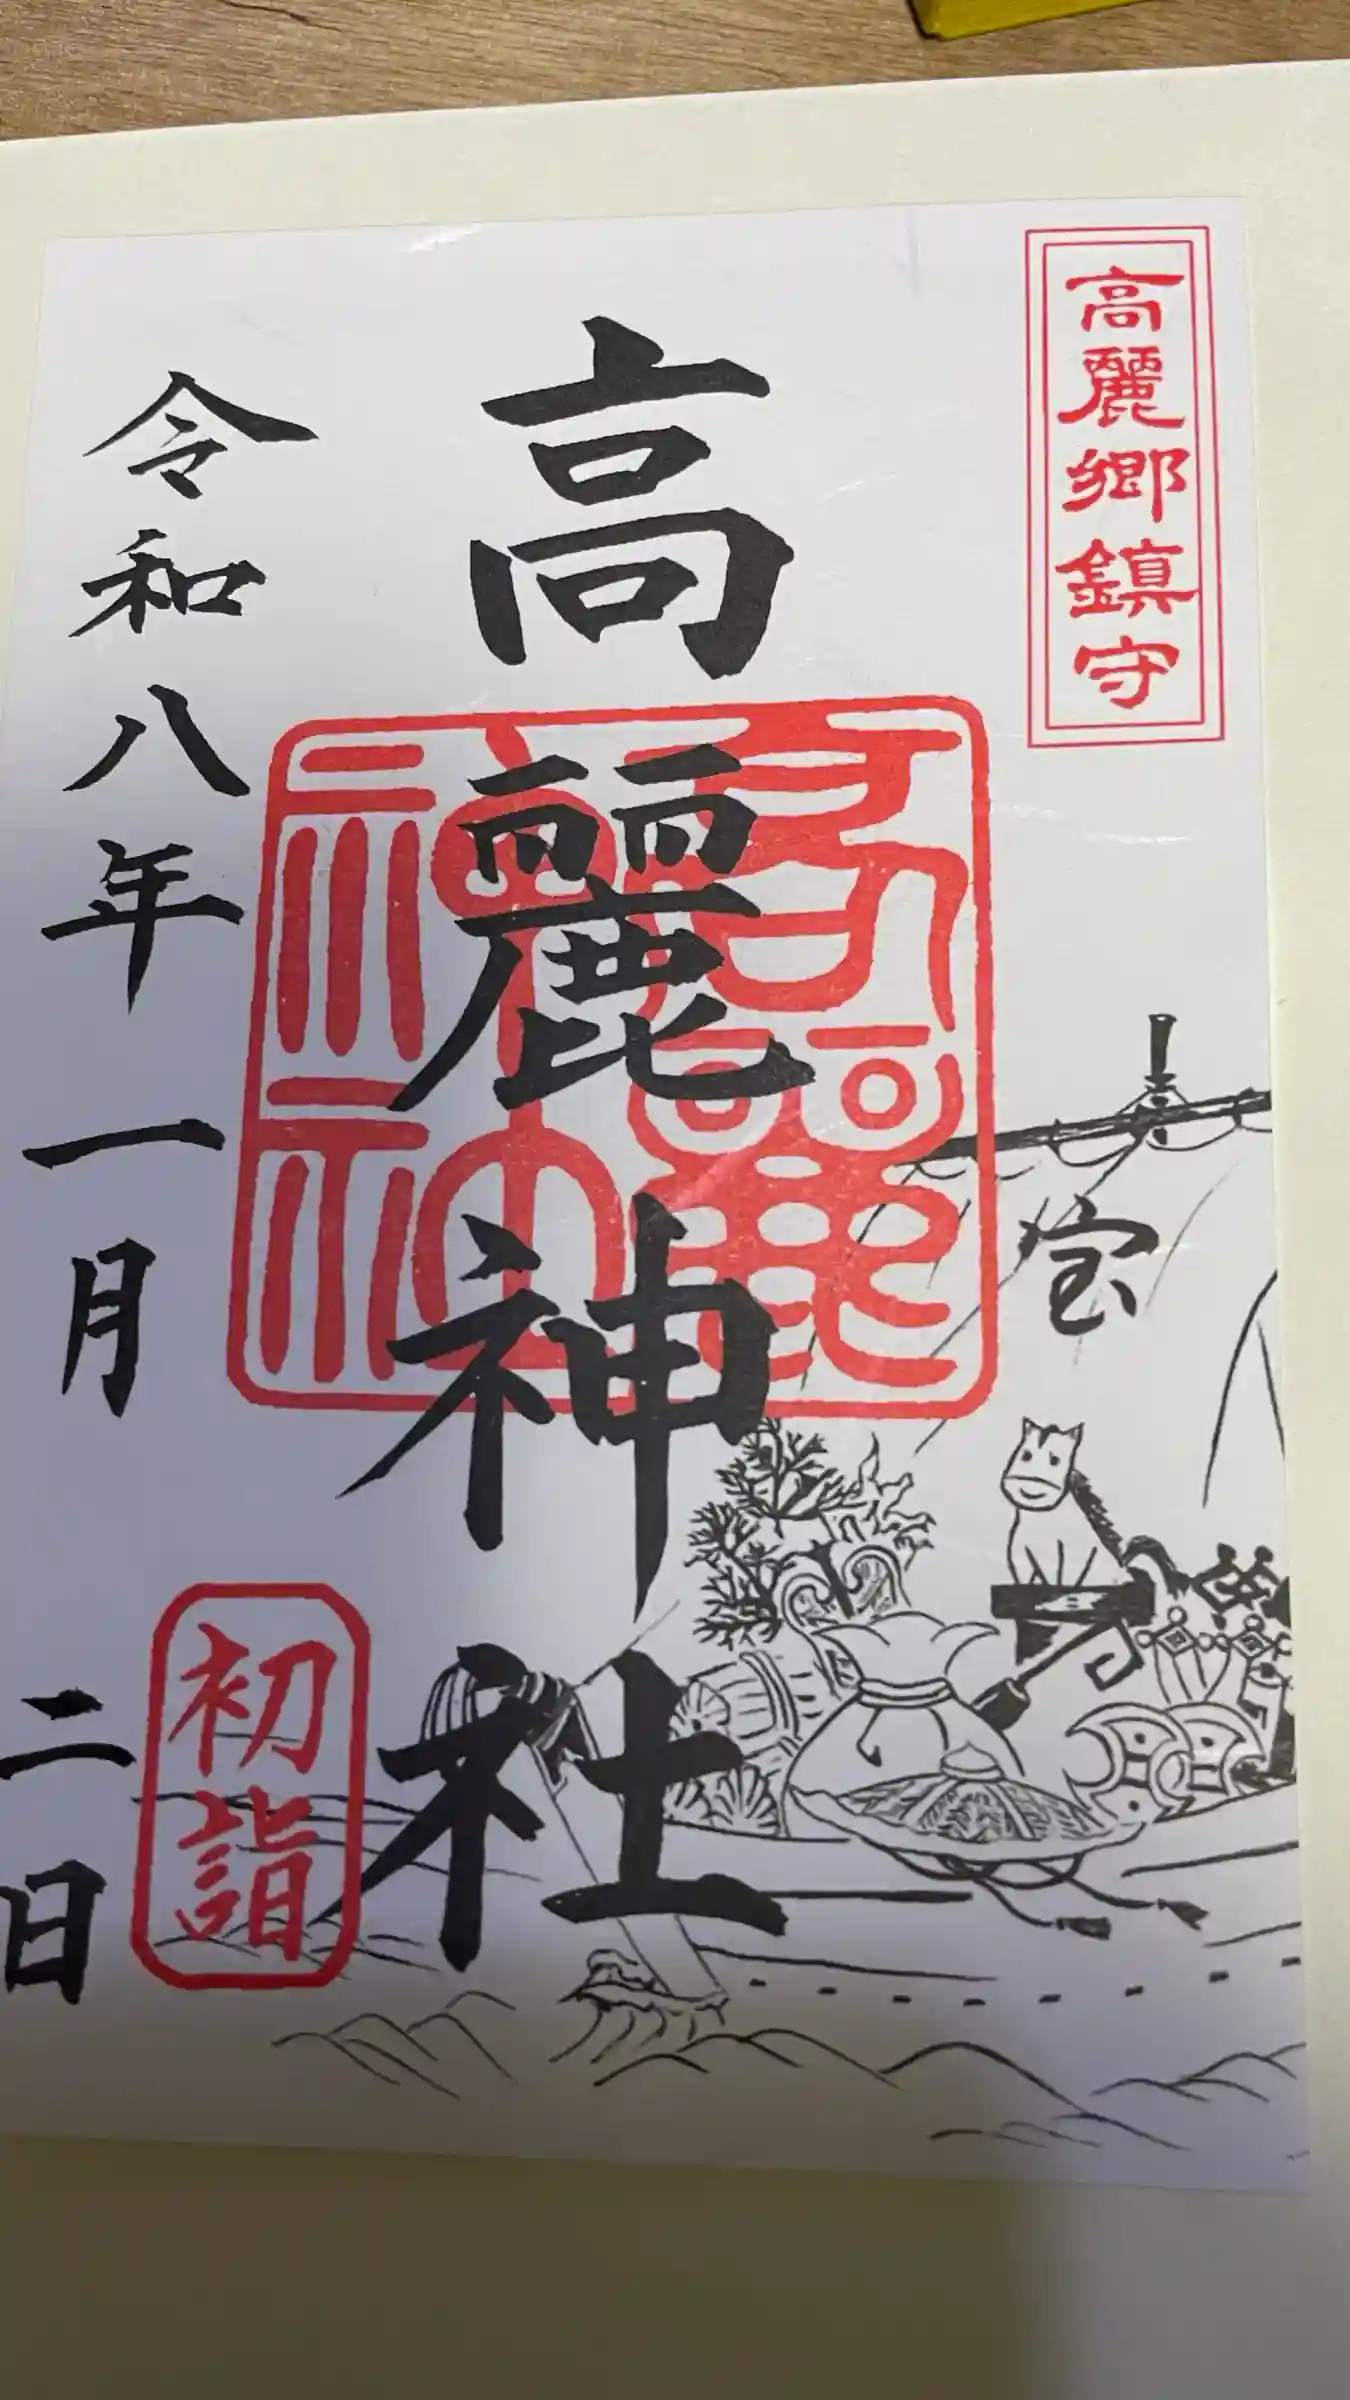 高麗郷鎮守
宝
高麗神社
高麗神社
令和八年一月二日
初詣